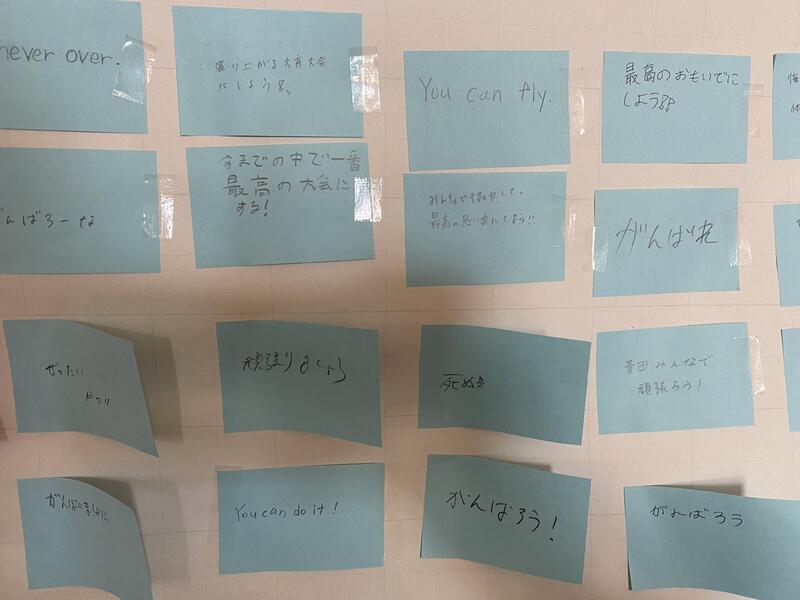 never over.
盛り上がる体育大会
にしよう
You can fly.
最高のおもいでに
しよう
がんばろーな
今までの中で一番
最高の大会に
する!
みんなで
最高の思い出にしよう!!
がんばれ
ぜったい
かつ!!
頑張りましょう
死ぬ気
青団みんなで
頑張ろう!
がんばりましょう
You can do it!
がんばろう!
がんばろう